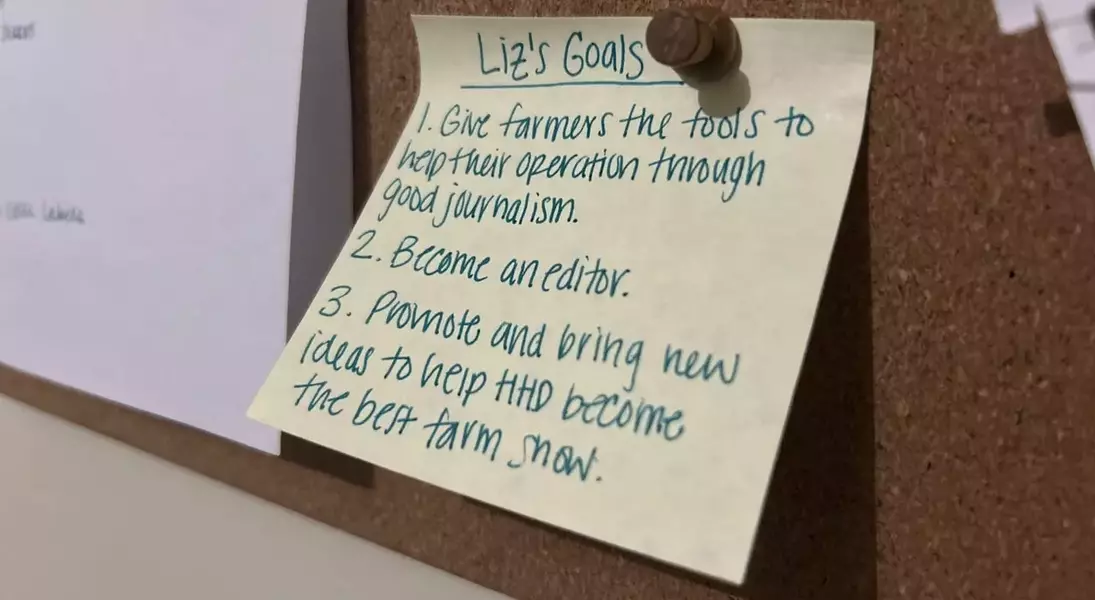 Liz's Goals
1. Give farmers the tools to
help their operation through
good journalism.
2. Become an editor.
3. Promote and bring new
ideas to help HHD become
the best farm show.